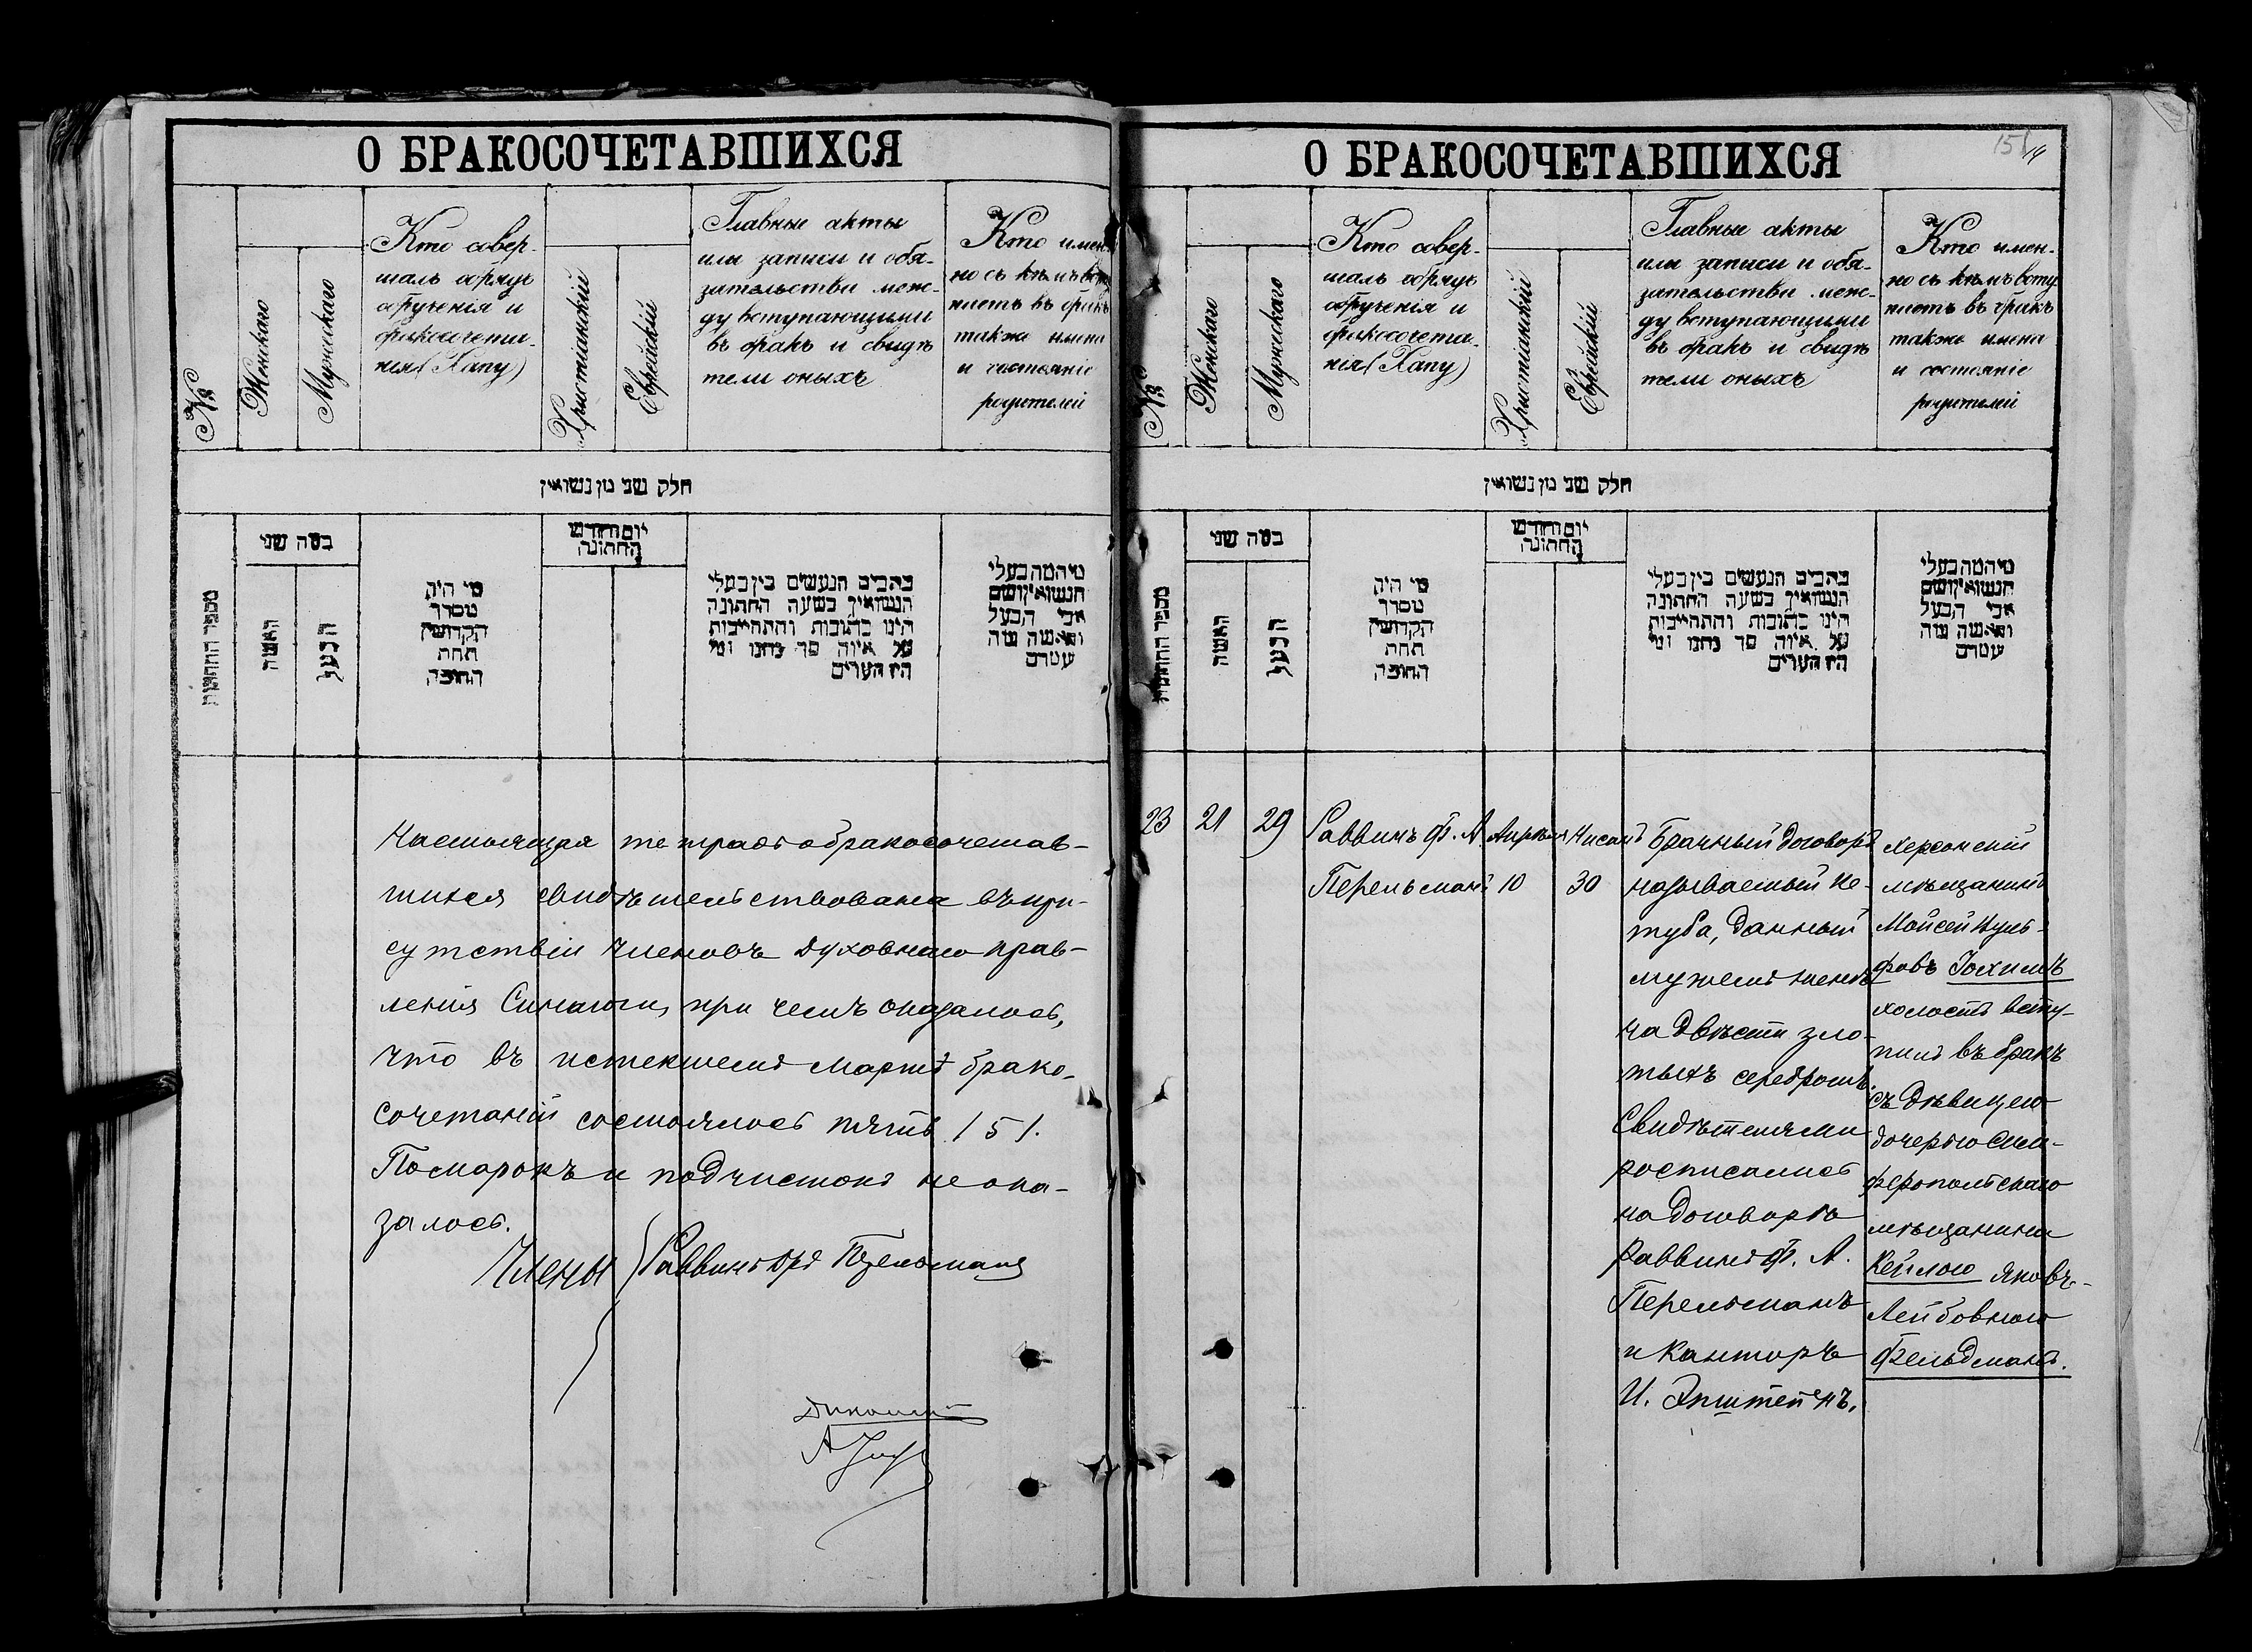 О БРАКОСОЧЕТАВШИХСЯ
№
Женскаго
Мужескаго
Кто совер-
шалъ обрядъ
обрученія и
бракосочета-
нія (Хапу)
Христіанскій
Еврейскій
Главные акты
или записи и обя-
зательства меж-
ду вступающими
въ бракъ и свидѣ
тели оныхъ
Кто имен
но съ кѣмъ всту
паетъ въ бракъ
также имена
и состояніе
родителей
חלק שני מן נשואין
מספר החתונות
במה שני
האשה
הבעל
מי היה
מסדר
הקדושין
תחת
החופה
יום וחודש
החתונה
כתבים הנעשים בין בעלי
הנשואין בשעה החתונה
היינו כתובות והתחייבות
על איזה סך נתנו ומי
היו העדים
מי המה בעלי
הנשואין ושם
אבי הבעל
והאשה ומה
Настоящая тетрадь о бракосочетав-
шихся свидѣтельствована въ при-
сутствіи членовъ духовнаго прав-
ленія Синагоги, при чемъ оказалось,
что въ истекшемъ Мартѣ брако-
сочетаній состоялось пять /5/.
Помарокъ и подчистокъ не ока-
залось.
Члены
Раввинъ Перельманъ
О БРАКОСОЧЕТАВШИХСЯ
151
14
№
Женскаго
Мужескаго
Кто совер-
шалъ обрядъ
обрученія и
бракосочета-
нія (Хапу)
Христіанскій
Еврейскій
Главные акты
или записи и обя-
зательства меж-
ду вступающими
въ бракъ и свидѣ
тели оныхъ
Кто имен-
но съ кѣмъ всту
паетъ въ бракъ
также имена
и состояніе
родителей
חלק שני מן נשואין
מספר החתונות
במה שני
האשה
הבעל
מי היה
מסדר
הקדושין
תחת
החופה
יום וחודש
החתונה
כתבים הנעשים בין בעלי
הנשואין בשעה החתונה
היינו כתובות והתחייבות
על איזה סך נתנו ומי
היו העדים
מי המה בעלי
הנשואין ושם
אבי הבעל
והאשה ומה
23
21
29
Раввинъ Ф. А.
Перельманъ
Апрѣля
10
Нисанъ
30
Брачный договоръ
называемый Ке-
туба, данный
мужемъ женѣ
на двѣсти зло-
тыхъ серебромъ.
Свидѣтелями
росписались
на договорѣ
Раввинъ Ф. А.
Перельманъ
и Канторъ
И. Эпштейнъ.
Херсонскій
мѣщанинъ
Мойсей
Іохимъ
холостъ всту-
пилъ въ бракъ
съ дѣвицею
дочерью Сим-
феропольскаго
мѣщанина
Кейлою Яковъ-
Лейбовною
Фельдманъ.